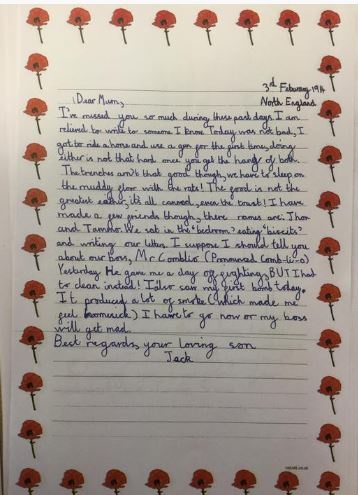 3rd February 1914
North England
Dear Mum,
I've missed you so much during these past days. I am
relieved to write to someone I know. Today was not bad, I
got to ride a horse and use a gun for the first time, doing
either is not that hard once you get the hang of both.
The trenches arn't that good though, we have to sleep on
the muddy floor with the rats! The food is not the
greatest either, it's all canned, even the treats! I have
made a few friends though, there names are: Jhon
and Tammo. We sat in the "bedroom" eating "biscits"
and writing our letters. I suppose I should tell you
about our boss, Mr Comblio (Pronounced Comb-li-o)
Yesterday He gave me a day of fighting, BUT I had
to clean instead! I also saw my first bomb today.
It produced a lot of smoke (which made me
feel homesick) I have to go now or my boss
will get mad.
Best regards, your loving son
Jack